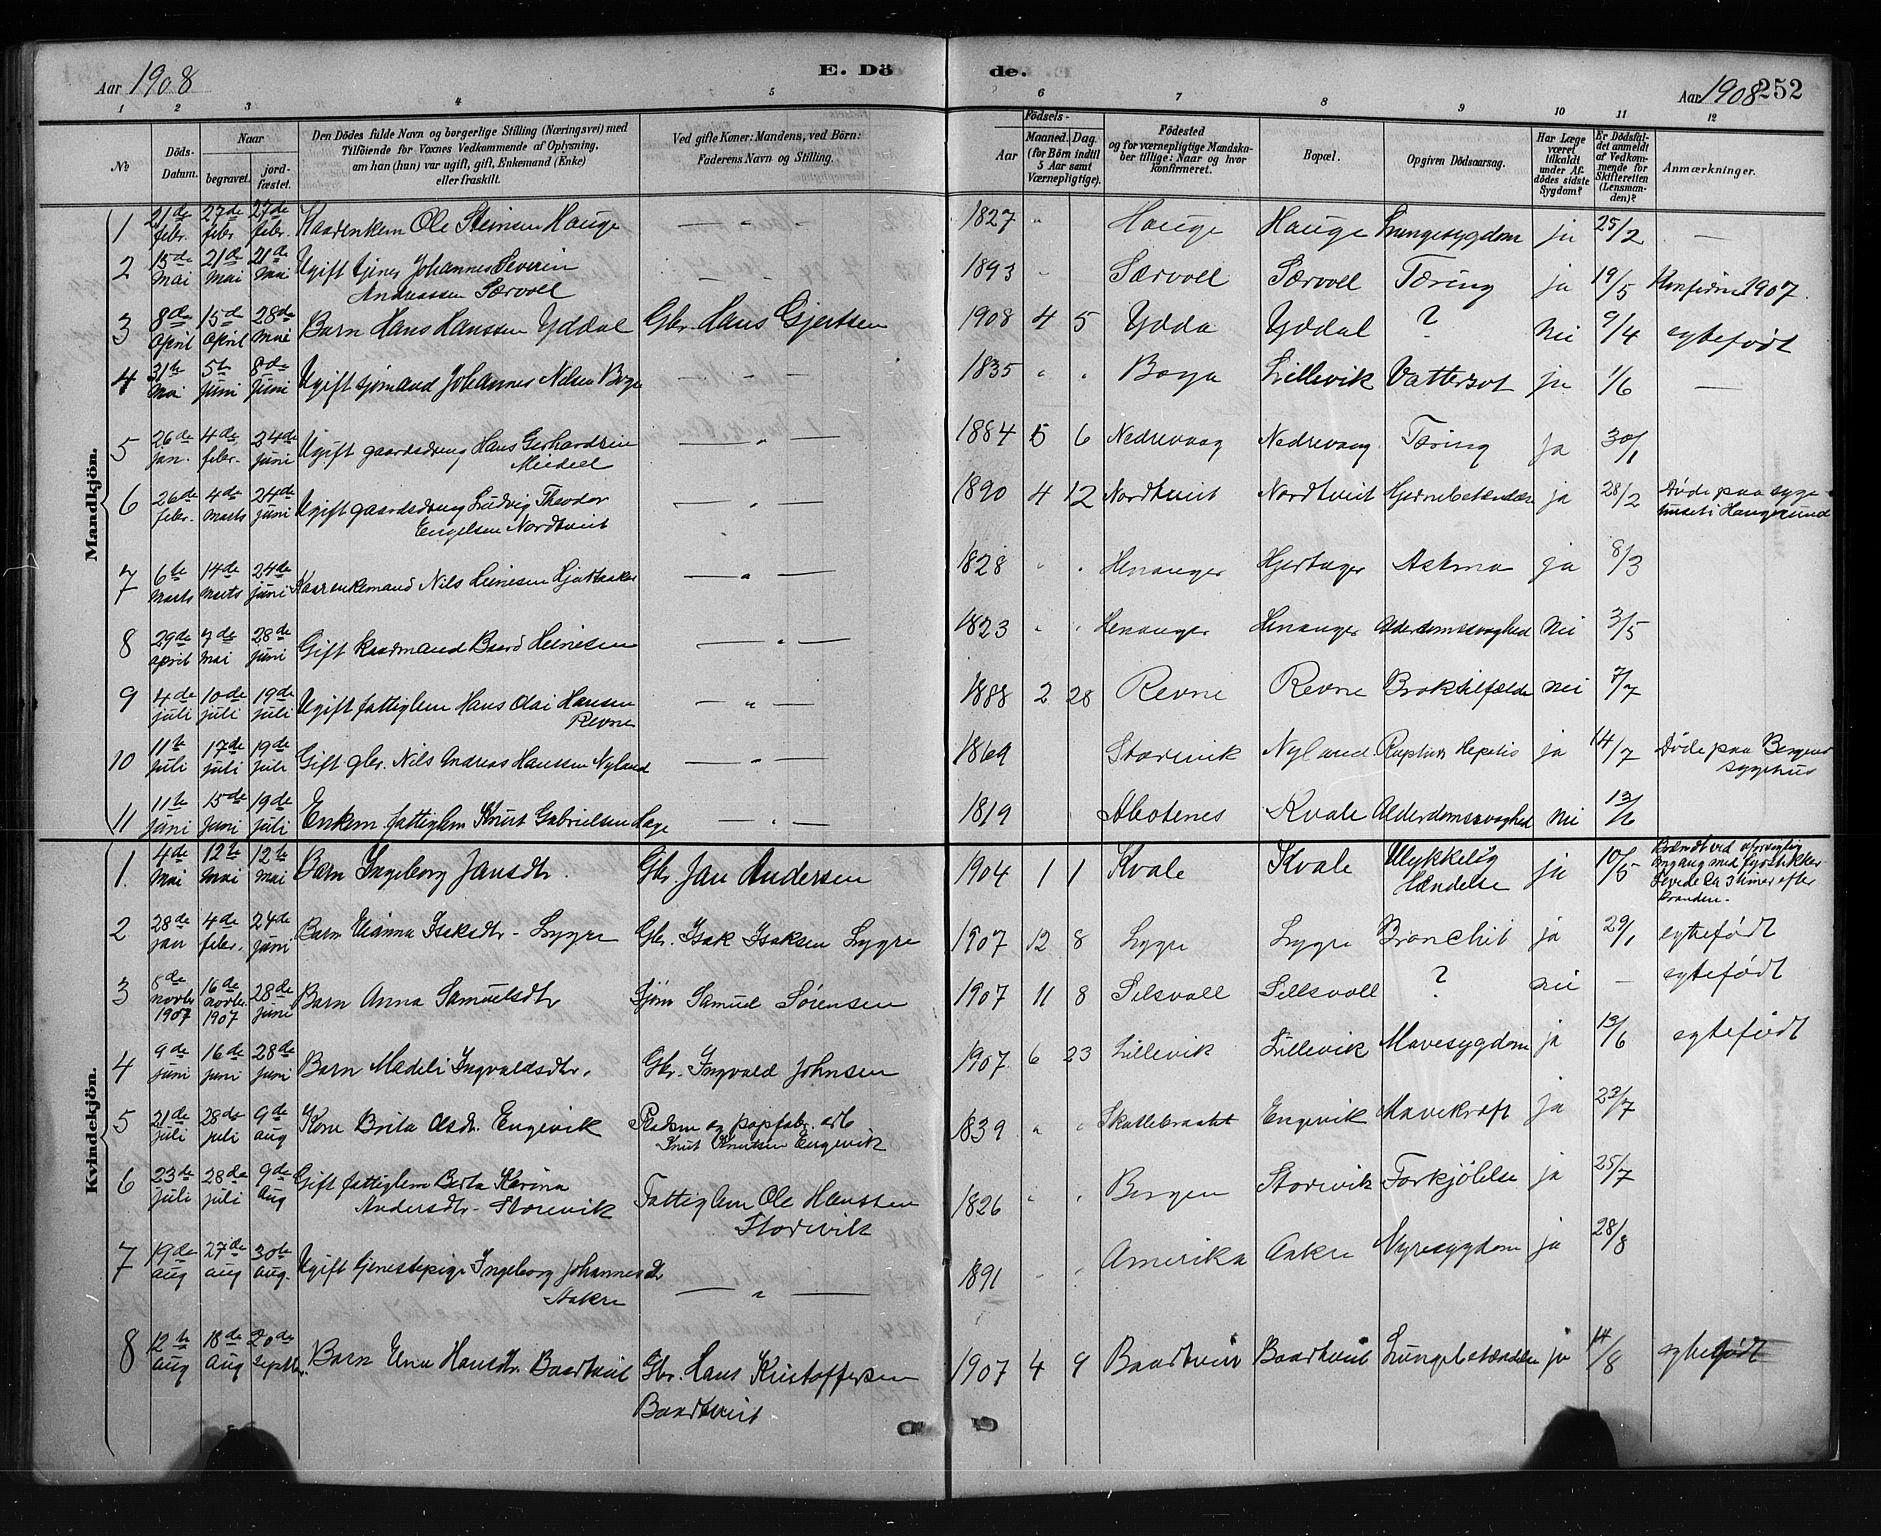 Aar 1908
E. Dö
de.
Aar 1908 252
1 2 3 4 5 6 7 8 9 10 11 12
№
Döds-Datum.
Naar
begravet.
jord-fæstet.
Den Dödes fulde Navn og borgerlige Stilling (Næringsvei) med
Tilföiende for Voxnes Vedkommende af Oplysning,
om han (hun) var ugift, gift, Enkemand (Enke)
eller fraskilt.
Ved gifte Koner: Mandens, ved Börn:
Faderens Navn og Stilling.
Födsels-
Aar
Maaned. Dag.
(for Börn indtil
5 Aar samt
Værnepligtige).
Födested
og for værnepligtige Mandska-
ber tillige: Naar og hvor
konfirmeret.
Bopæl.
Opgiven Dödsaarsag.
Har Læge
været
tilkaldt
under Af-
dödes sidste
Sygdom?
Er Dödsfal-
det anmeldt
af Vedkom-
mende for
Skifteretten
(Lensman-
den)?
Anmærkninger.
Mandkjön.
1 21de febr. 27de febr. 27de febr. Kaarenkem Ole Steinsen Hauge — " — 1827 " Hauge Hauge Lungesygdom ja 25/2 —
2 15de Mai 21de Mai 21de Mai Ugift tjener Johannes Severin
Andreassen Særvoll — " — 1893 Særvoll Særvoll Tæring ja 19/5 Konfirm 1907.
3 8de April 15de April 28de Mai Barn Hans Hanssen Yddal Gbr. Hans Gjertsen 1908 4 5 Ydda Yddal ? nei 9/4 egtefødt
4 31te Mai 5te Juni 8de Juni Ugift sjømand Johannes Nilsen Boge — — — 1835 " " Lillevik Vattersot ja 1/6 —
5 26de jan. 4de febr. 24de juni Ugift gaardsdreng Hans Gerhardsen — " — 1884 5 6 Nedrevaag Nedrevaag Tæring ja 30/1
6 26de febr. 4de Marts 24de juni Ugift gaardsdreng Ludvig Theodor
Engelsen Nordtveit — " — 1890 4 12 Nordtveit Nordtveit Hjernebetændelse ja 28/2 Døde paa syge-
huset i Haugesund
7 6te Marts 14de Marts 24de juni Kaarenkemand Nils Heinesen Hjartaaker — " — 1828 " " Henanger Hjertager Astma ja 8/3
8 29de april 7de Mai 28de juni Gift kaarmand Baard Heinesen — " — 1823 " " Henanger Henanger Alderdomssvaghed nei 3/5
9 4de juli 10de juli 19de juli Ugift fattiglem Hans Olai Hansen
Revne — " — 1888 2 28 Revne Revne Broktilfælde nei 7/7
10 11te juli 17de juli 19de juli Gift gbr. Nils Andreas Hanssen Nyland — " — 1869 Storevik Nyland Ruptura Hepatis ja 14/7 Døde paa Bergens
sygehus
11 11te juni 15de juni 19de juli Enkem. fattiglem Knut Gabrielsen — " — 1819 Kvale Alderdomssvaghed nei 13/6
Kvindekjön.
1. 4de Mai 12te Mai 12te Mai Barn Ingeborg Jansdtr. Gbr. Jan Andersen 1904 1 1 Kvale Kvale Ulykkelig
Hændelse ja 10/5 Brændt ved uforsigtig
omgang med fyrstikker
Levede ca 3 timer efter
branden.
2 28de jan 4de febr. 24de juni Barn Isaksdtr. Lygre Gbr. Isak Isaksen Lygre 1907 12 8 Lygre Lygre Bronchit ja 29/1 egtefødt
3 8de novbr. 1907 16de novbr. 1907 28de juni Barn Anna Samuelsdtr Sjøm Samuel Sørensen 1907 11 8 Selsvoll Sellsvoll ? nei — egtefødt
4 9de juni 16de juni 28de juni Barn Madeli Ingvaldsdtr. Gbr. Ingvald Johnsen 1907 6 23 Lillevik Lillevik Mavesygdom ja 13/6 egtefødt
5 21de juli 28de juli 9de aug Kone Brita Olsdtr. Engevik Pladsm og papfabr. arb.
Knut Knutsen Engevik 1839 " " Engevik Mavekræft ja 23/7
6 23de juli 28de juli 9de Aug Gift fattiglem Berta Karina
Andersdtr. Storevik Fattiglem Ole Hanssen
Storevik 1826 " " Bergen Storevik Forkjølelse ja 25/7
7 19de aug 27de aug 30te aug. Ugift tjenestepige Ingeborg Johannesdtr
Aakre — " — 1891 " " Amerika Aakre Nyresygdom ja 28/8
8 12te aug 18de Aug 20de septbr. Barn Hansdtr. Baardtveit Gbr. Hans Kristoffersen
Baardtveit 1907 4 9 Baardtveit Baardtveit Lungebetændelse ja 14/8 egtefødt